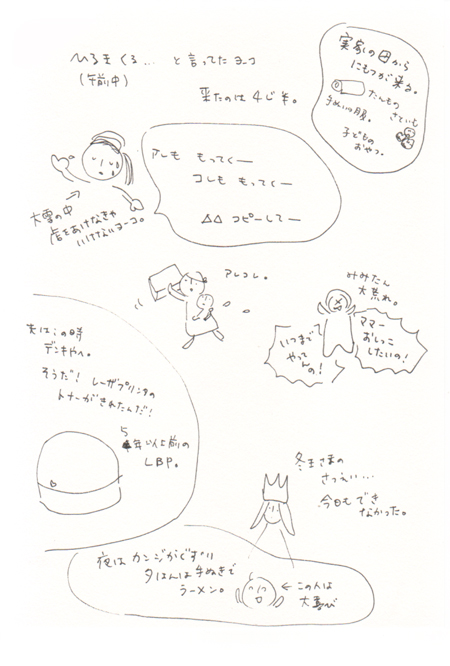 ひるまくる… と言ってたヨーコ
(午前中)
来たのは4じ半。
実家の母から
にもつが来る。
たんもの
さといも
手ぬい服。
子どもの
おやつ。
アレも もってくー
コレも もってくー
△△ コピーしてー
大雪の中
店をあけなきゃ
いけないヨーコ。
アレコレ。
みみたん
大荒れ。
ママー
おしっこ
したいの!
いつまで
やってん
の!
夫はこの時
デンキやへ。
そうだ! レーザプリンタの
トナーがきれたんだ!
5
年以上前の
LBP。
冬王さまの
さつえい…
今日もでき
なかった。
夜は カンジがぐずり
夕はんは手ぬきで
ラーメン。
←この人は
大喜び